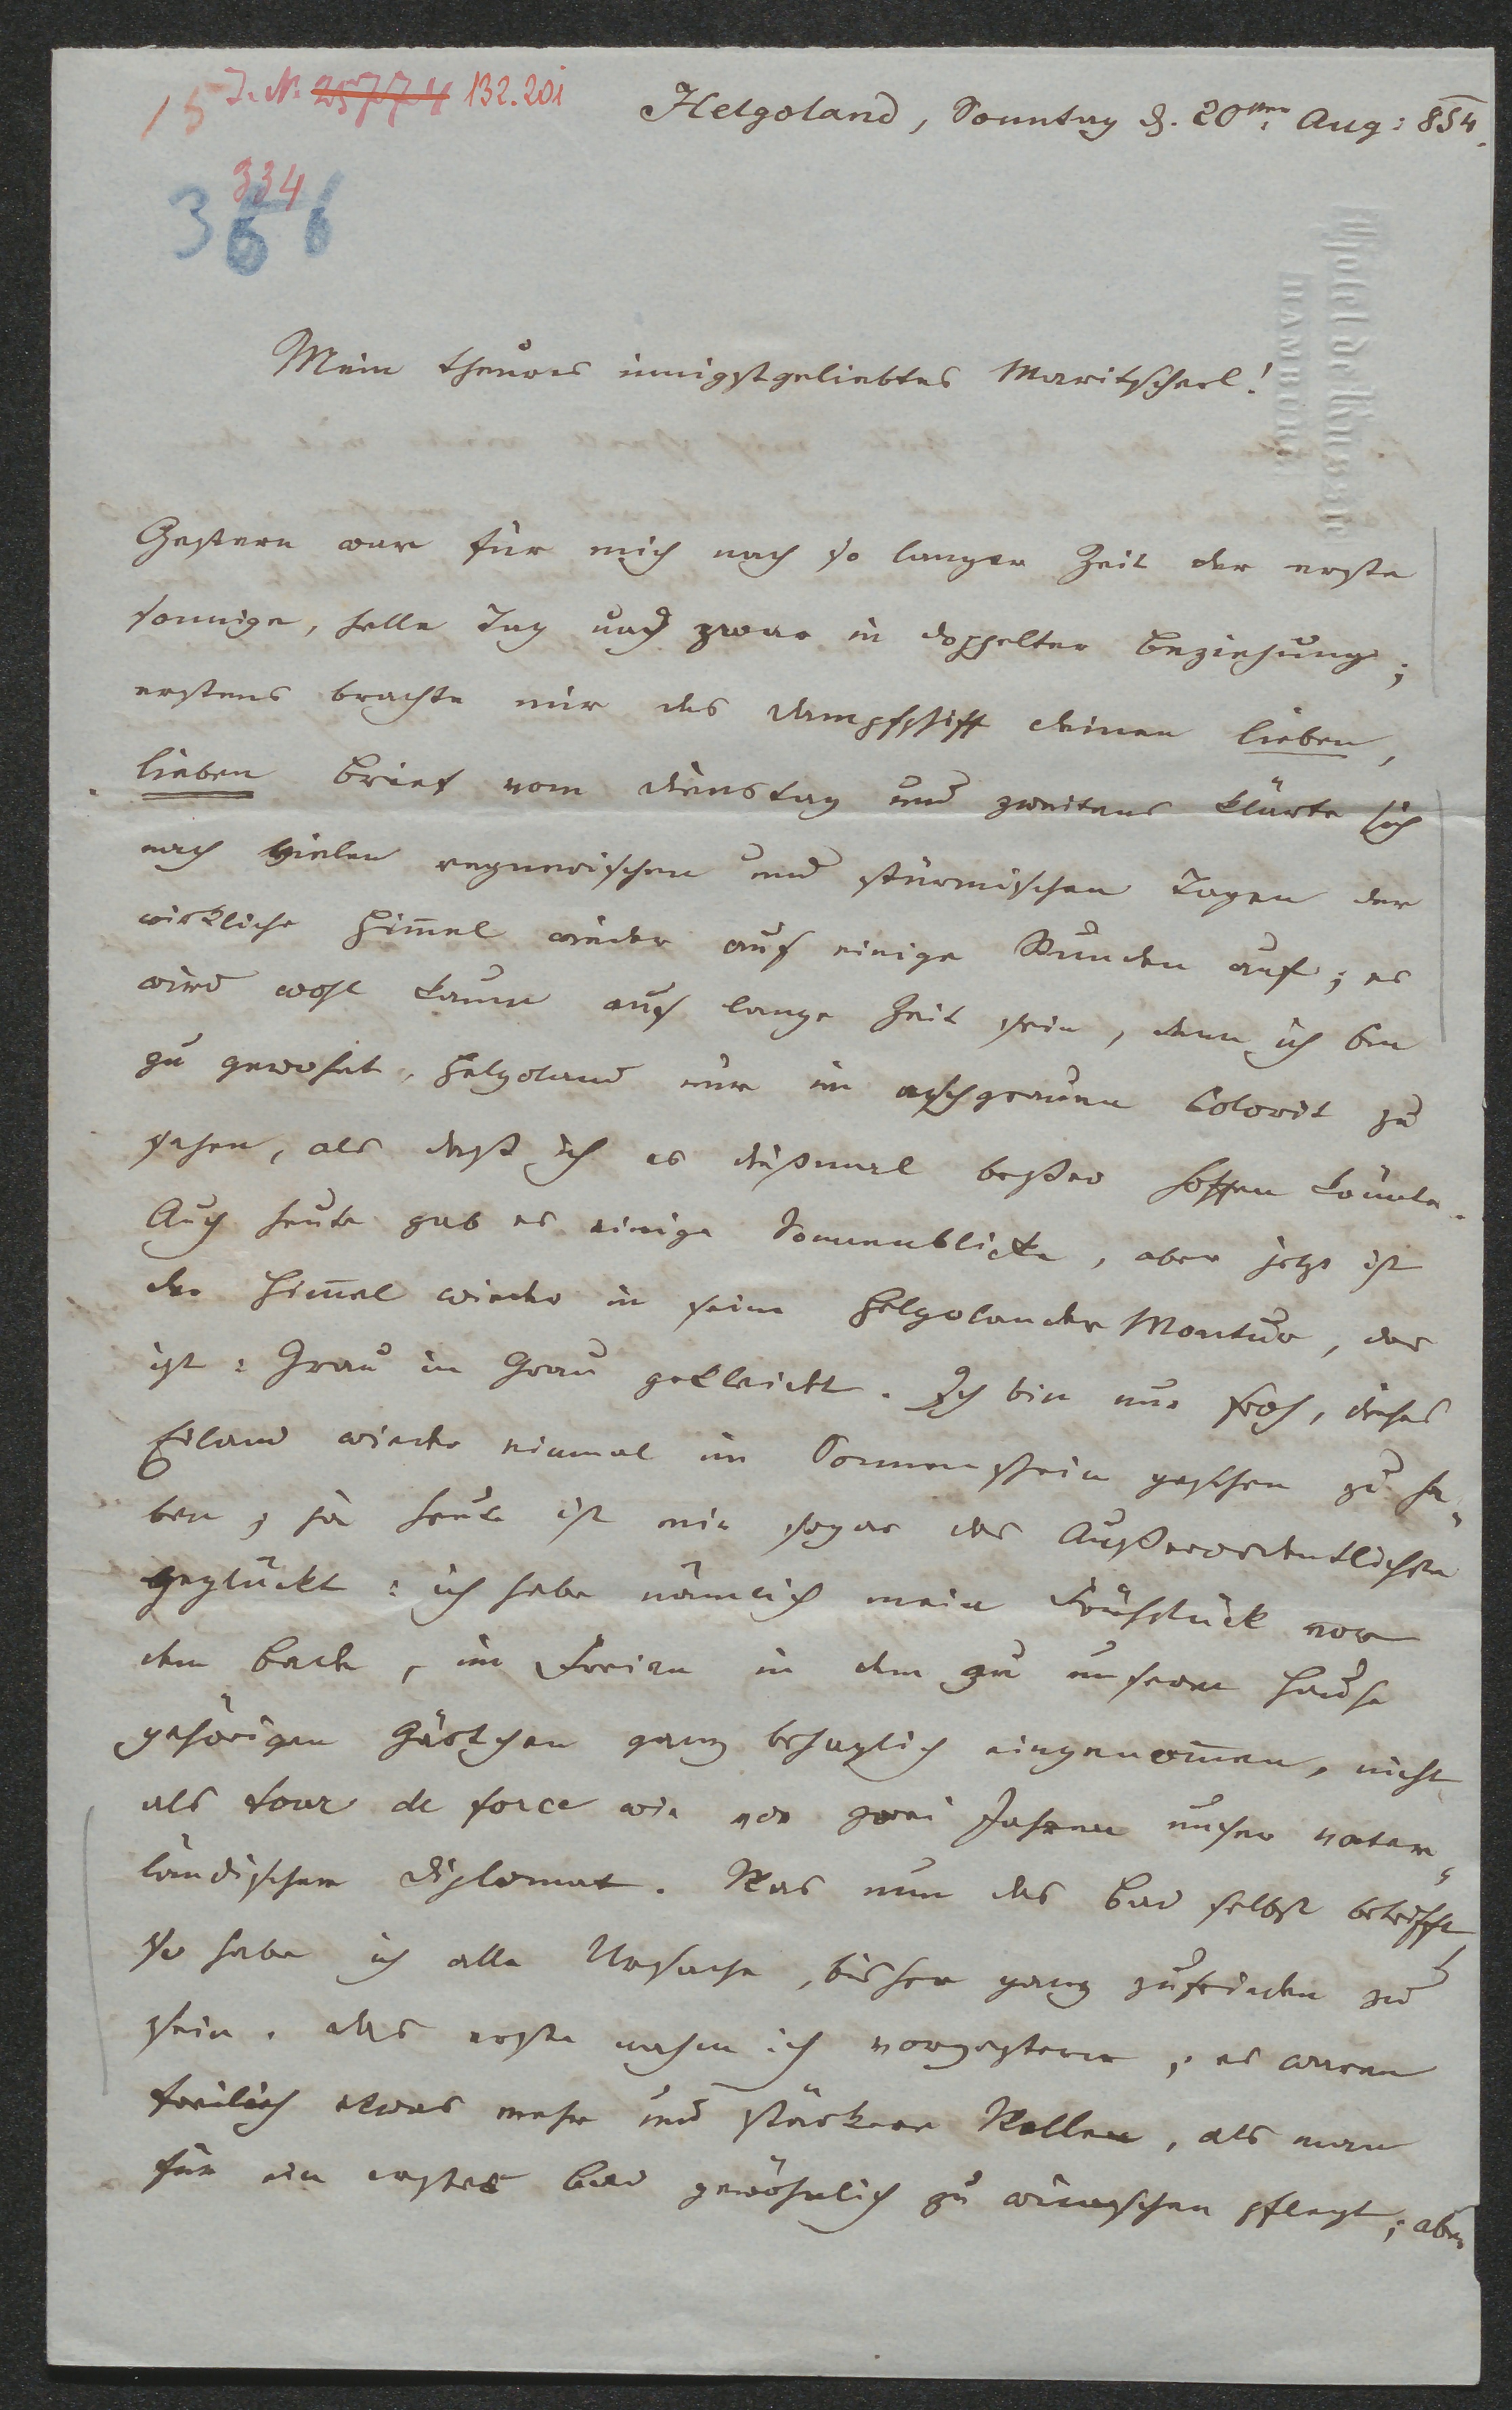 15 I. N. 25774 132.201
Helgoland, Sonntag d. 20ten Aug: 854.
334
366
Hotel de Russie
HAMBURG
Mein theures innigstgeliebtes Maritscherl!
Gestern war für mich nach so langer Zeit der erste
sonnige, helle Tag und zwar in doppelter Beziehung;
erstens brachte mir das Dampfschiff deinen lieben,
lieben Brief vom Dienstag und zweitens klärte sich
nach vielen regnerischen und stürmischen Tagen der
wirkliche Him̄el wieder auf einige Stunden auf; es
wird wohl kaum auf lange Zeit sein, denn ich bin
zu gewohnt, Helgoland nur im aschgrauen Colorit zu
sehen, als daß ich es dießmal beßer hoffen könnte.
Auch heute gab es einige Sonnenblicke, aber jetzt ist
der Him̄el wieder in seine Helgolander Montur, das
ist: Grau in Grau gekleidet. Ich bin nur froh, dieses
Eiland wieder einmal im Sonnenschein gesehen zu ha-
ben; ja heute ist mir sogar das Außerordentlichste
geglückt: ich habe nämlich mein Frühstück vor
dem Bade, im Freien in dem zu unserem Hause
gehörigen Gärtchen ganz behaglich eingenom̄en, nicht
als tour de force wie vor zwei Jahren unser vater-
ländischer Diplomat. Was nun das Bad selbst betrifft,
so habe ich alle Ursache, bisher ganz zufrieden zu
sein. Das erste nahm ich vorgestern; es waren
freilich etwas mehr und stärkere Wellen, als man
für ein erstes Bad gewöhnlich zu wünschen pflegt; aber